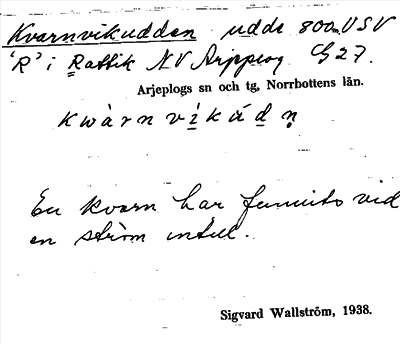 Kvarnvikudden udde 800m VSV
'R' i Rattik NV Arjeplog G27.
Arjeplogs sn och tg, Norrbottens län.
kwàrn vìkúdn̥
En kvarn har funnits vid
en ström intill.
Sigvard Wallström, 1938.